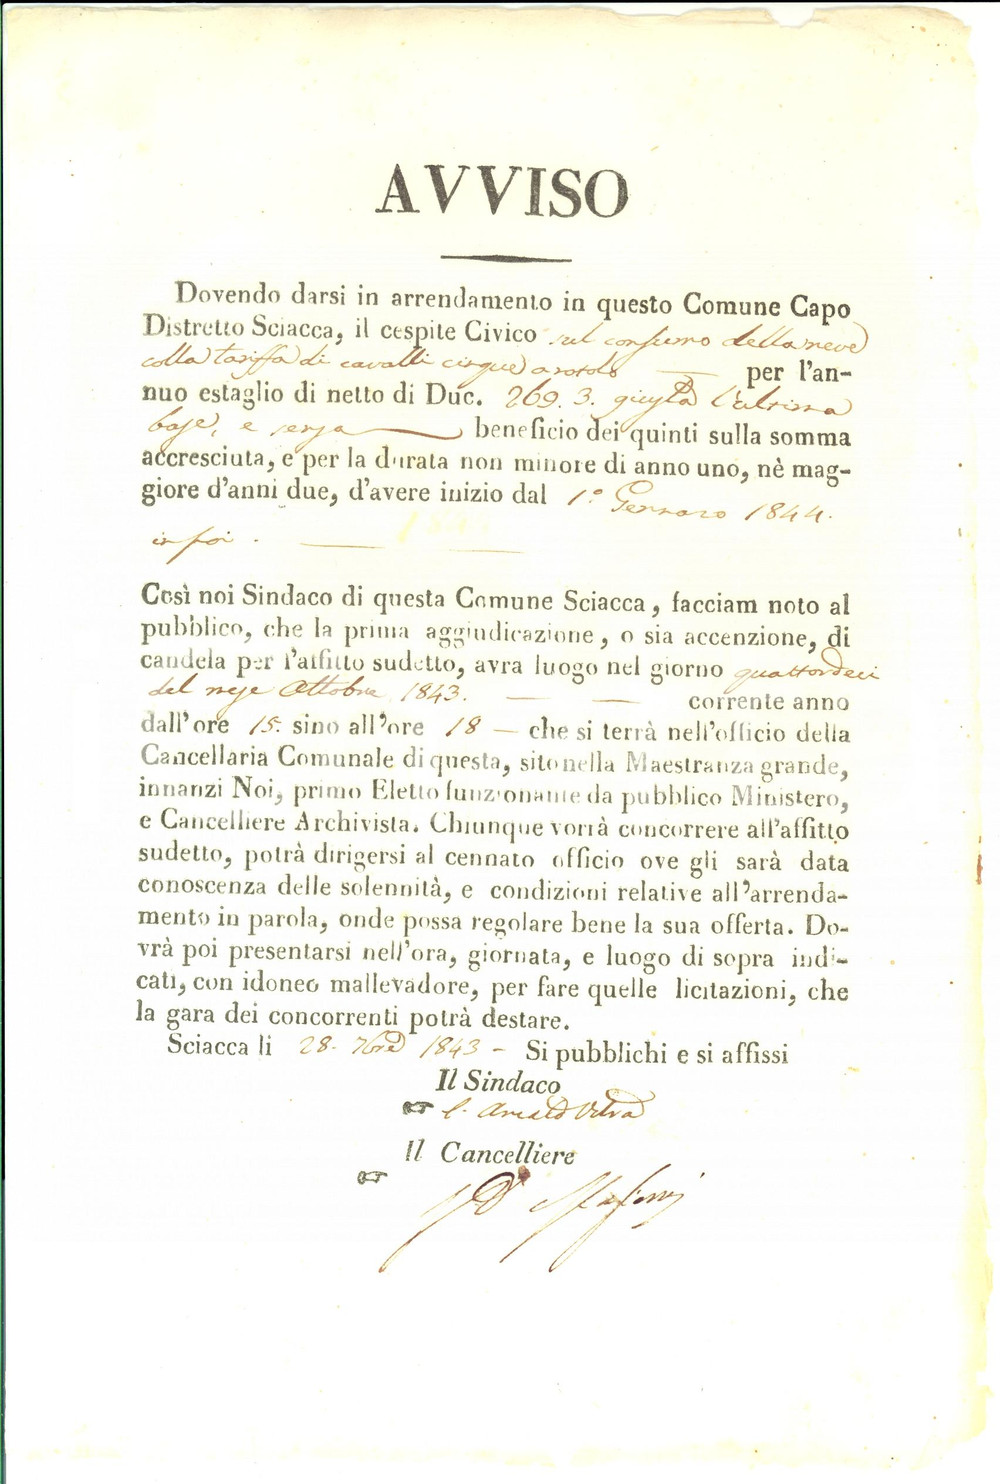 AVVISO
Dovendo darsi in arrendamento in questo Comune Capo
Distretto Sciacca, il cespite Civico sul consumo della neve
colla tariffa di cavalli cinque a rotolo — per l'an-
nuo estaglio di netto di Duc. 269. 3. giusta l'ultima
base, e senza beneficio dei quinti sulla somma
accresciuta, e per la durata non minore di anno uno, nè mag-
giore d'anni due, d'avere inizio dal 1.° Gennaro 1844.
in poi. — —
Così noi Sindaco di questa Comune Sciacca, facciam noto al
pubblico, che la prima aggiudicazione, o sia accenzione, di
candela per l'affitto sudetto, avra luogo nel giorno quattordeci
del mese Ottobre 1843. — — corrente anno
dall'ore 15. sino all'ore 18 — che si terrà nell'officio della
Cancellaria Comunale di questa, sito nella Maestranza grande,
innanzi Noi, primo Eletto funzionante da pubblico Ministero,
e Cancelliere Archivista. Chiunque vorrà concorrere all'affitto
sudetto, potrà dirigersi al cennato officio ove gli sarà data
conoscenza delle solennità, e condizioni relative all'arrenda-
mento in parola, onde possa regolare bene la sua offerta. Do-
vrà poi presentarsi nell'ora, giornata, e luogo di sopra indi-
cati, con idoneo mallevadore, per fare quelle licitazioni, che
la gara dei concorrenti potrà destare.
Sciacca li 28. 7bre 1843 — Si pubblichi e si affissi
Il Sindaco
Il Cancelliere